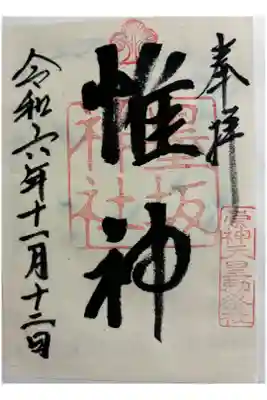 奉拝
惟神
墨坂
神社
令和六年十一月十二日